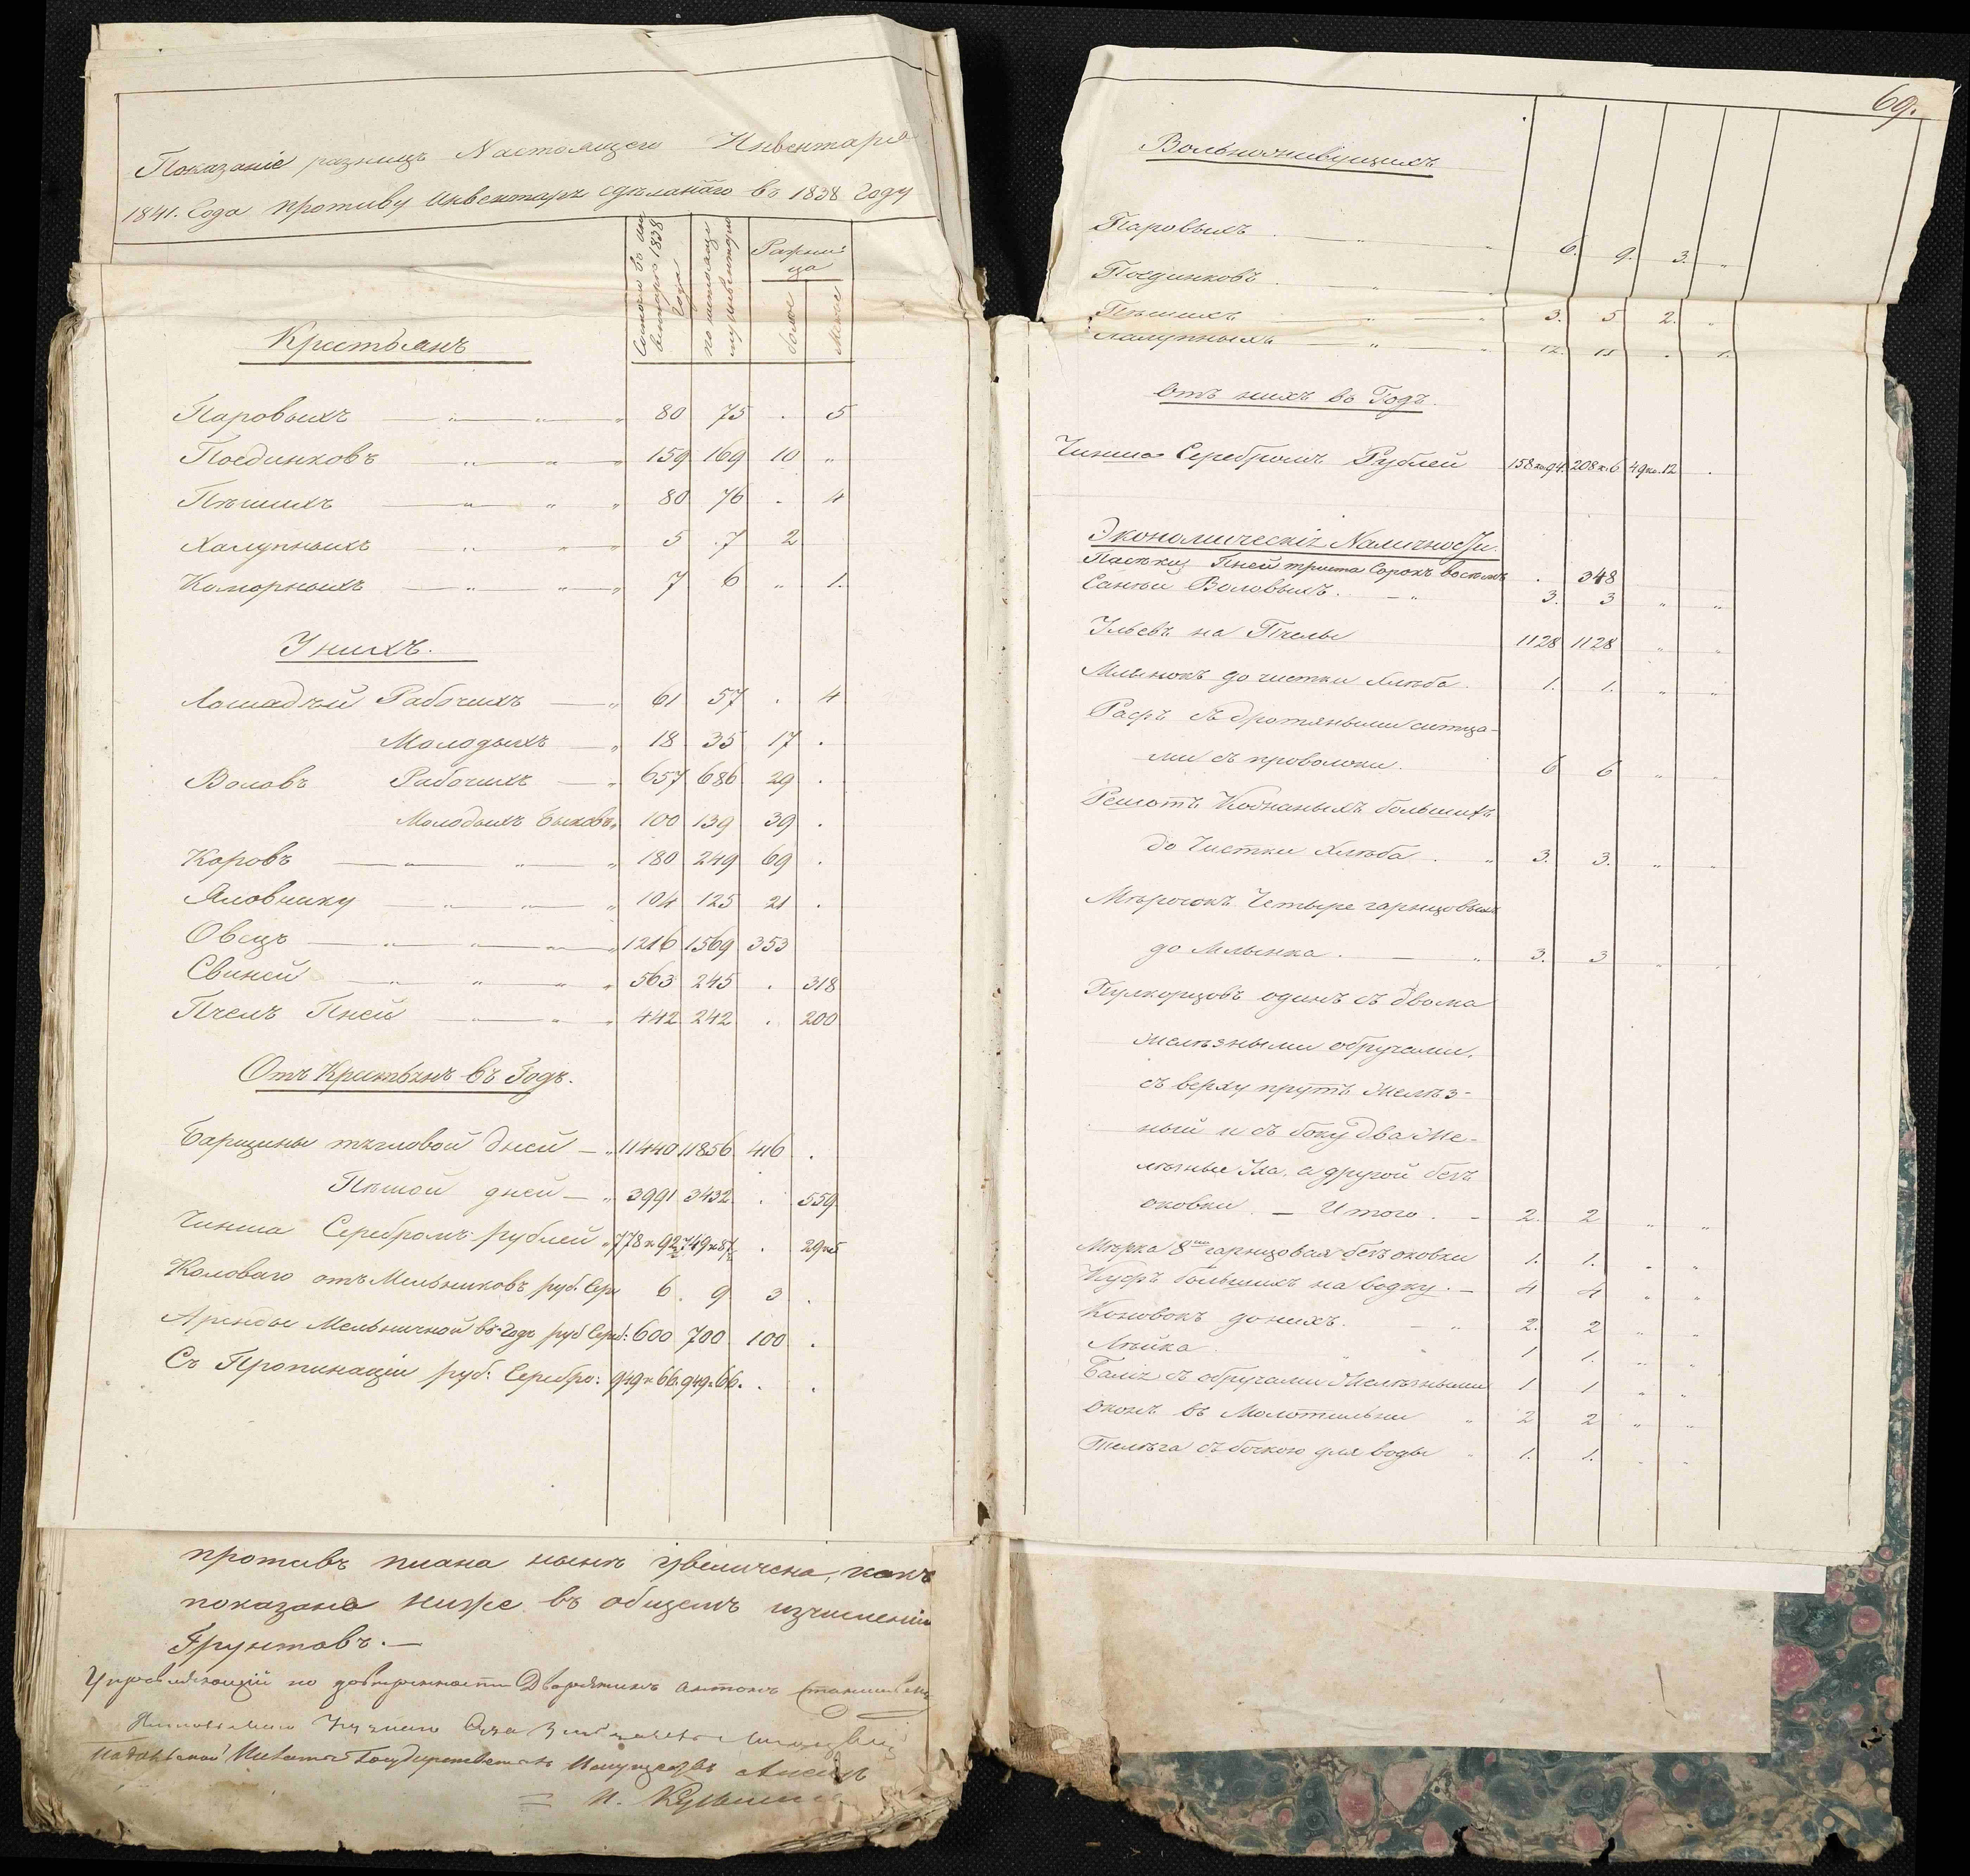 Показаніе разницъ Настоящего Инвентаря
1841. Года противу Инвентаря сдѣланаго въ 1838 Году
Состояло въ Ин-
вентарѣ 1838
Года
по настояще-
му инвентарю
Разни-
ца
болѣе
Менее
Крестьянъ
Паровыхъ 80 75 . 5
Поединковъ 159 169 10 "
Пѣшихъ 80 76 . 4
Халупныхъ 5 7 2
Коморныхъ 7 6 " 1.
У нихъ.
Лошадѣй Рабочихъ 61 57 . 4
Молодыхъ 18 35 17 .
Воловъ Рабочихъ 657 686 29 .
Молодыхъ быковъ 100 139 39 .
Коровъ 180 249 69 .
Яловнику 104 125 21 .
Овецъ 1216 1569 353
Свиней 563 245 . 318
Пчелъ Пней 442 242 . 200
Отъ Крестьянъ въ Годъ.
Барщины тягловой дней 11440 11856 416 .
Пѣшой дней 3991 3432 . 559
Чинша Серебромъ рублей 778 к 92 749 к 87 . 29 к 5
Коловаго отъ Мельниковъ руб. Сер. 6 9 3 .
Аренды Мельничной въ Годъ руб Сереб: 600 700 100 .
Съ Пропинаціи руб: Серебро: 949 к 66. 949 к 66. . .
противъ плана нынѣ увеличена, какъ
показано ниже въ общемъ изчисленіи
Грунтовъ.—
Управляющій по довѣренности Дворянинъ Антонъ
Подольской Палаты Государственныхъ Имуществъ
69.
Вольноживущихъ
Паровыхъ 6. 9. 3. "
Поединковъ
Пѣшихъ 3. 5 2. .
Халупныхъ 12. 11 . 1.
Отъ нихъ въ Годъ.
Чинша Серебромъ Рублей 158 ко 94. 208 к. 6 49 ко. 12 .
Экономическіе Наличности.
Пасѣки Пней триста Сорокъ восемь . 348
Санѣи Воловыхъ. 3. 3 " "
Ульевъ на Пчелы 1128 1128 " "
Млынокъ до чистки хлѣба. 1. 1. " "
Рафъ съ дротяными ситца-
ми съ проволоки. 6 6 " "
Решотъ Кожаныхъ большихъ
до Чистки хлѣба. 3. 3. " "
Мѣрочокъ Четыре гарнцовыхъ
до Млынка. 3. 3 " "
Пулкорцовъ одинъ съ двома
желѣзными обручами,
съ верху прутъ желѣз-
ный и съ боку два же-
лѣзные Уха, а другой безъ
оковки. — Итого. 2. 2 " "
Мѣрка 8ми гарнцовая безъ оковки 1. 1. " "
Куфъ большихъ на водку. 4 4 " "
Коновокъ до нихъ. 2. 2 " "
Лѣйка. 1 1. " "
Балія съ обручами желѣзными 1 1 " "
Оконъ въ Молотильни 2 2 " "
Телѣга съ бочкою для воды 1. 1. " "